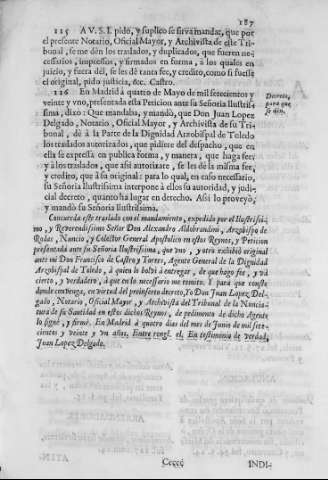 187
115 A V. S. I. pido, y suplico se sirva mandar, que por
el presente Notario, Oficial Mayor, y Archivista de este Tri-
bunal, se me dèn los traslados, y duplicados, que fueren ne-
cessarios, impressos, y firmados en forma, à los quales en
juicio, y fuera dèl, se les dè tanta fee, y credito, como si fuesse
el original, pido justicia, &c. Castro.
116 En Madrid à quatro de Mayo de mil setecientos y
veinte y uno, presentada esta Peticion ante su Señoria Ilustris-
sima, dixo: Que mandaba, y mandò, que Don Juan Lopez
Delgado, Notario, Oficial Mayor, y Archivista de su Tri-
bunal, dè à la Parte de la Dignidad Arzobispal de Toledo
los traslados autorizados, que pidiere del despacho, que en
ella se expressa en publica forma, y manera, que haga fee;
y à los traslados, que assi autorizare, se les dè la misma fee,
y credito, que à su original: para lo qual, en caso necessario,
su Señoria Ilustrissima interpone à ellos su autoridad, y judi-
cial decreto, quanto ha lugar en derecho. Assi lo proveyò,
y mandò su Señoria Ilustrissima.
Decreto,
para que
se dèn.
Concuerda este traslado con el mandamiento, expedido por el Ilustrissi-
mo, y Reverendissimo Señor Don Alexandro Aldobrandini, Arzobispo de
Rodas, Nuncio, y Colector General Apostolico en estos Reynos, y Peticion
presentada ante su Señoria Ilustrissima, que uno, y otro exhibiò original
ante mi Don Francisco de Castro y Torres, Agente General de la Dignidad
Arzobispal de Toledo, à quien lo bolvì à entregar, de que hago fee, y và
cierto, y verdadero, à que en lo necessario me remito. Y para que conste
donde convenga, en virtud del preinserto decreto, Yo Don Juan Lopez Del-
gado, Notario, Oficial Mayor, y Archivista del Tribunal de la Nuncia-
tura de su Santidad en estos dichos Reynos, de pedimento de dicho Agente
lo signè, y firmè. En Madrid à quatro dias del mes de Junio de mil sete-
cientos y veinte y un años. Entre rengl. el. En testimonio de verdad,
Juan Lopez Delgado.
Ccccc
INDI-